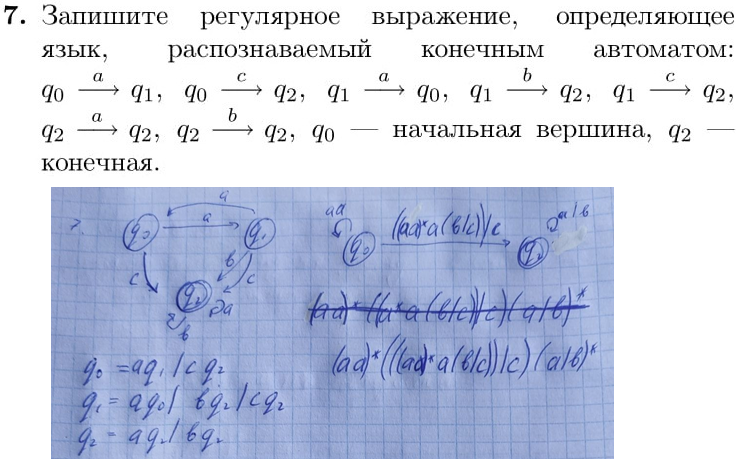 7. Запишите регулярное выражение, определяющее
язык, распознаваемый конечным автоматом:
q₀ —a→ q₁, q₀ —c→ q₂, q₁ —a→ q₀, q₁ —b→ q₂, q₁ —c→ q₂,
q₂ —a→ q₂, q₂ —b→ q₂, q₀ — начальная вершина, q₂ —
конечная.
7.
a
q₀ a q₁
c b c
q₂ a
b
aa
q₀ ((aa)*a(b|c))|c q₂ a|b
(aa)*((a*a(b|c))|c)(a|b)*
(aa)*(((aa)*a(b|c))|c)(a|b)*
q₀ = aq₁ | cq₂
q₁ = aq₀ | bq₂ | cq₂
q₂ = aq₂ | bq₂